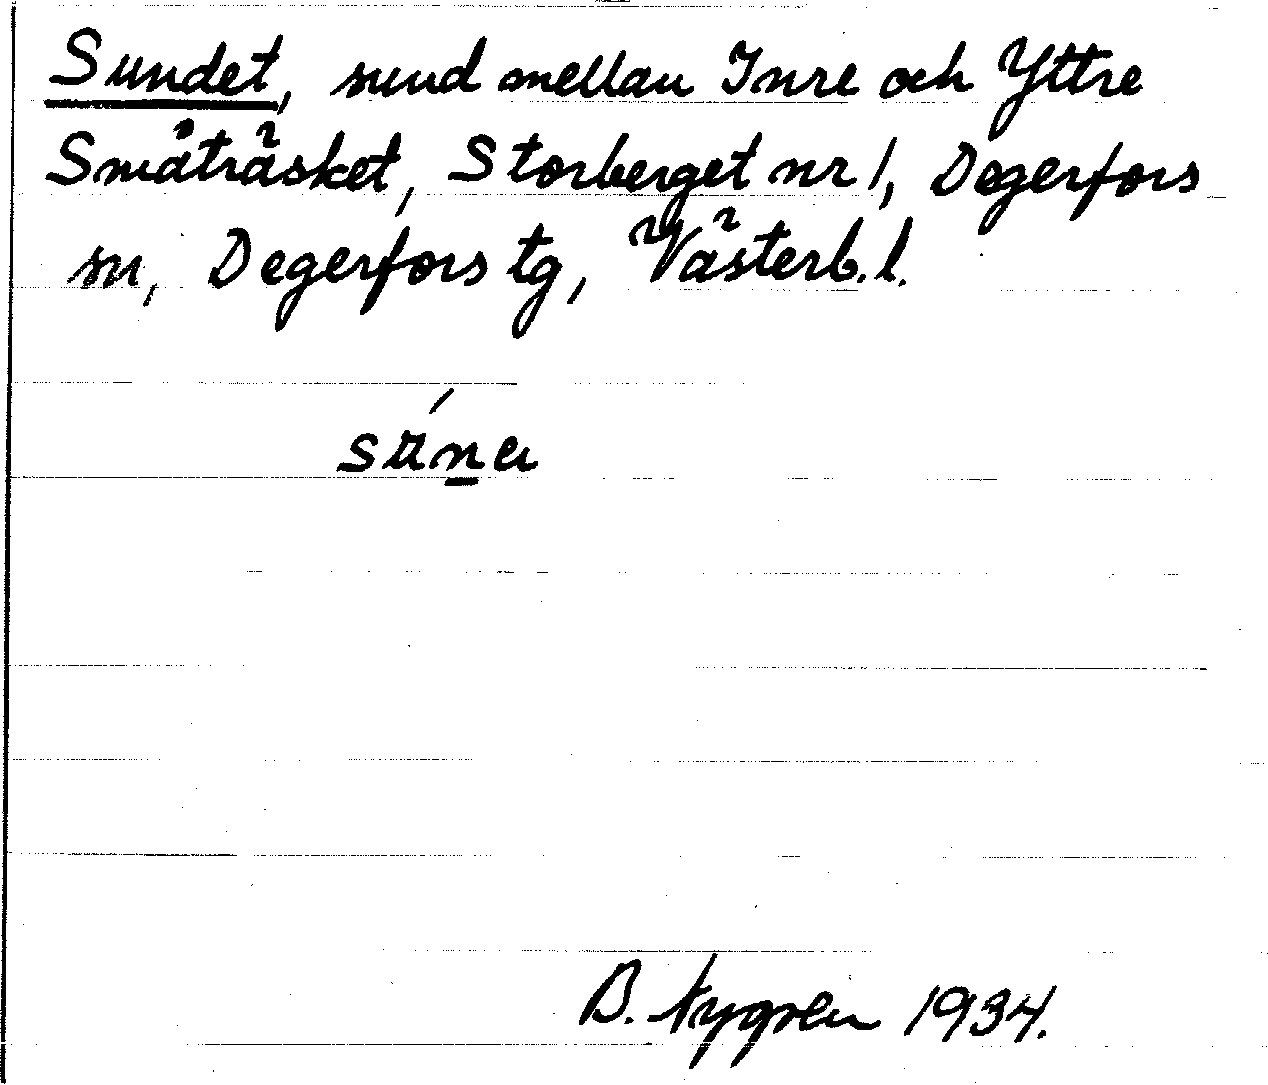 Sundet, sund mellan Inre och Yttre
Småträsket, Storberget nr 1, Degerfors
sn, Degerfors tg, Västerb. l.
B. Nygren 1934.